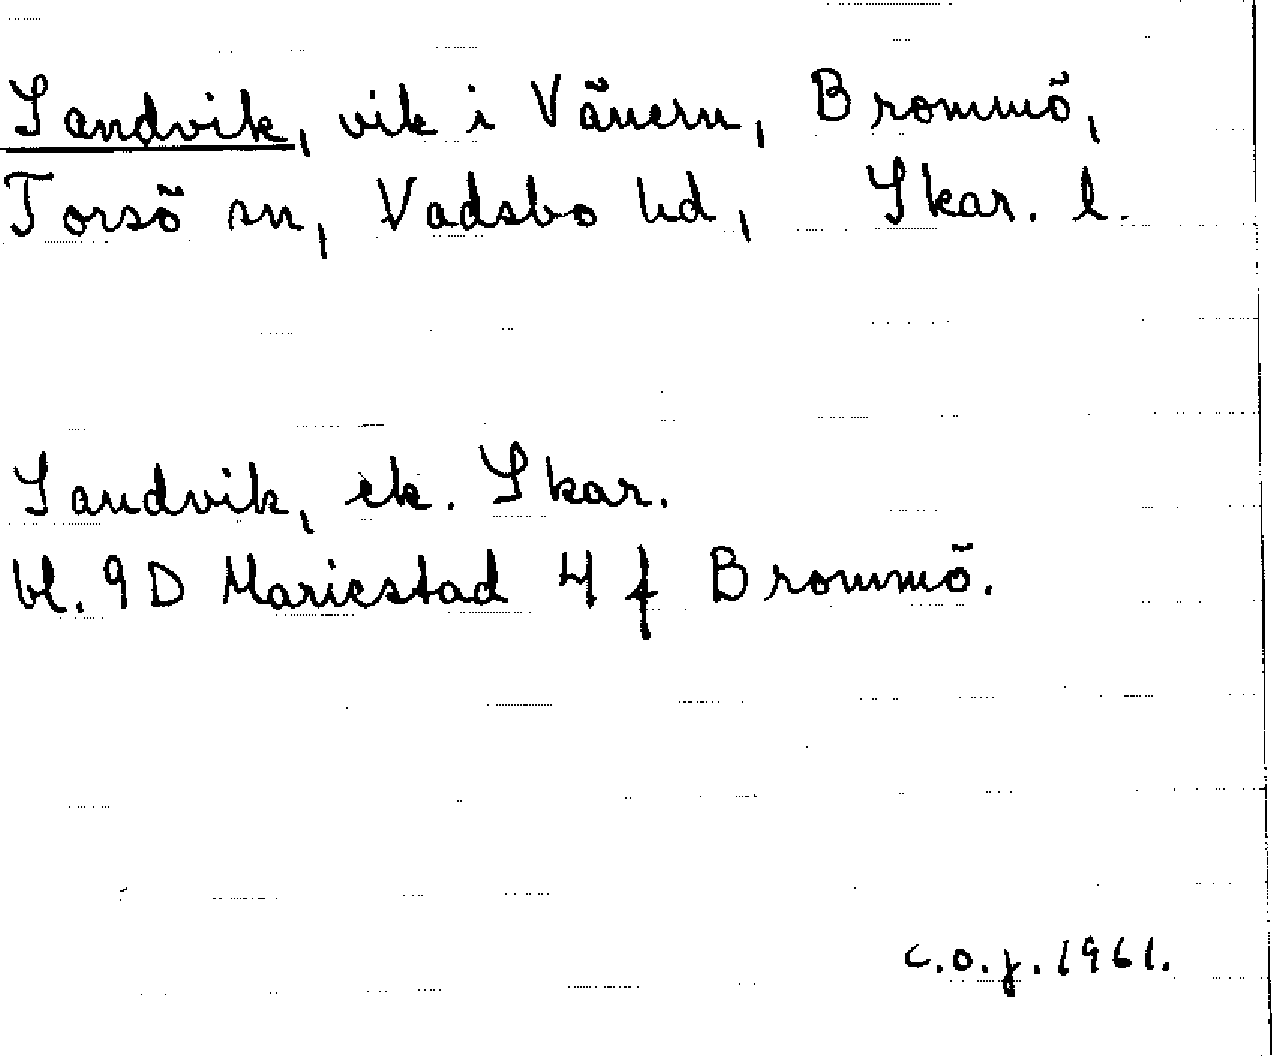 Sandvik, vik i Vänern, Brommö,
Torsö sn, Vadsbo hd, Skar. l.
Sandvik, ek. Skar.
bl. 9D Mariestad 4 f Brommö.
C.O.J. 1961.